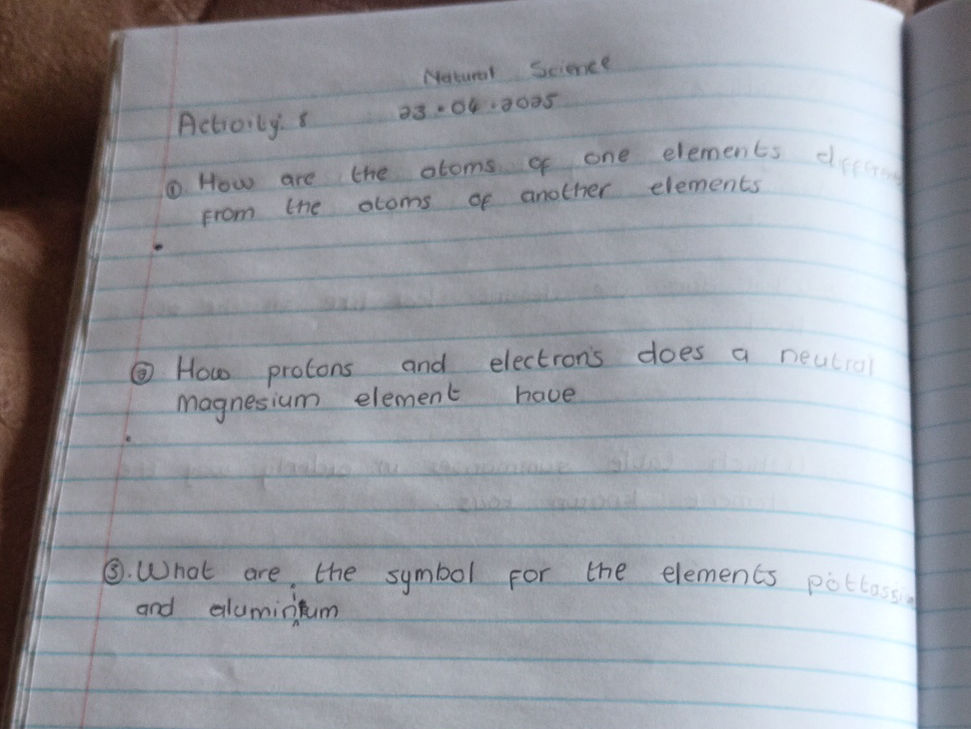 Natural Science
Activity: 8 23.04.2025
① How are the atoms of one elements different
from the atoms of another elements
② How protons and electrons does a neutral
magnesium element have
③. What are the symbol for the elements pottassi
and aluminium